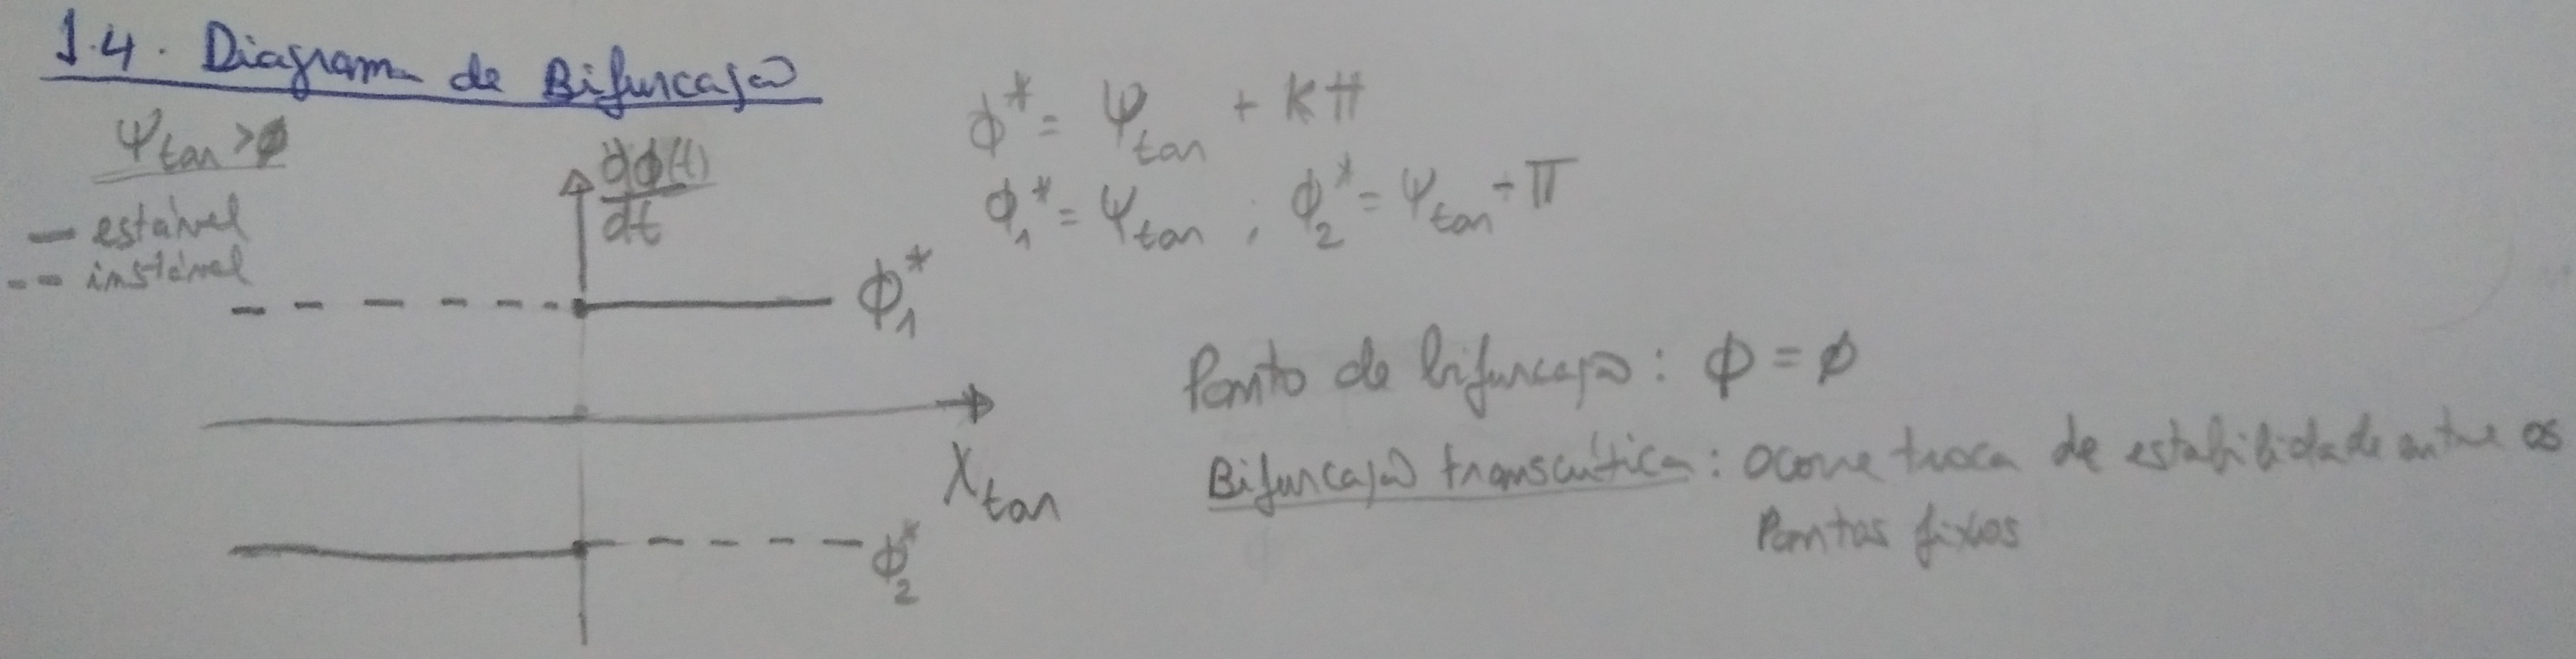 1.4. Diagrama de Bifurcação
ψtan > ø
— estável
-- instável
dϕ(t)
dt
ϕ1*
Xtan
ϕ2*
ϕ* = ψtan + Kπ
ϕ1* = ψtan ; ϕ2* = ψtan - π
Ponto de bifurcação: ϕ = ø
Bifurcação transcrítica: ocorre troca de estabilidade entre os
Pontos fixos